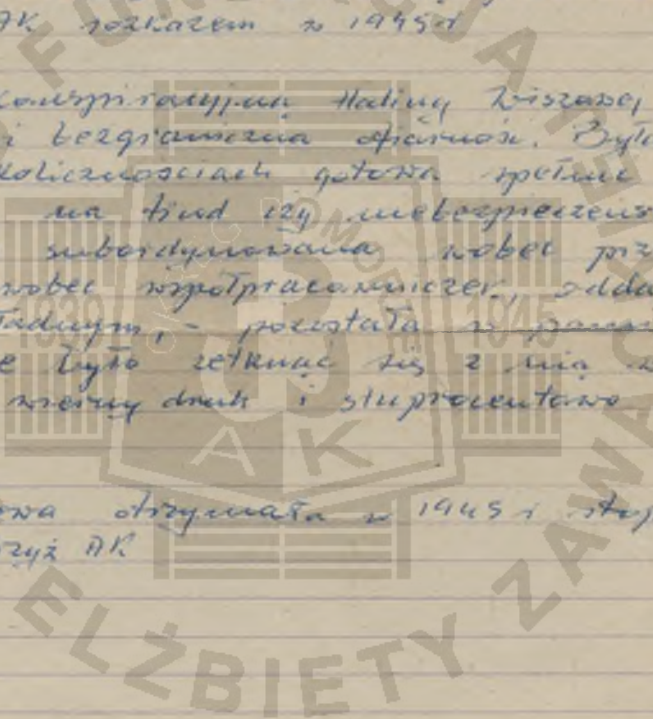 AK rozkazem w 1945 r
konspiracyjną Haliny
i bezgraniczna ofiarność. Była
okolicznościach gotowa spełnić
na trud czy niebezpieczeńs
subordynowana wobec prz
wobec współpracowniczek, odda
ładnym, - pozostała w
e było zetknąć się z nią
wierny druh i stuprocentowo
owa otrzymała w 1945 r sto
rzyż AK
FUNDACJA
OKRĘG POMORZE
1939 1945
AK
ELŻBIETY ZAWA